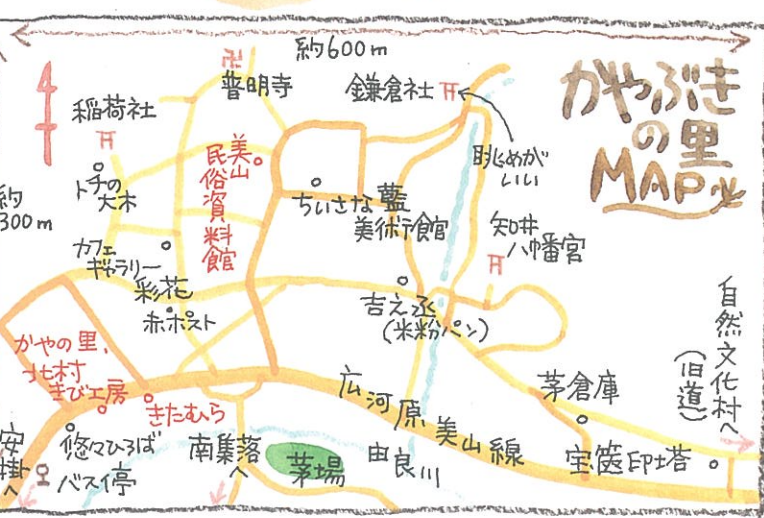 約600m
かやぶき
の里
MAP
卍
普明寺
鎌倉社
稲荷社
眺めが
いい
美山
民俗資料館
トチの
大木
約
300m
ちいさな藍
美術館
知井
八幡宮
カフェ
ギャラリー
彩花
赤ポスト
吉之丞
(米粉パン)
自然文化村へ
(旧道)
かやの里、
北村
きび工房
きたむら
広河原美山線
茅倉庫
安掛へ
悠々ひろば
バス停
南集落
へ
茅場
由良川
宝篋印塔